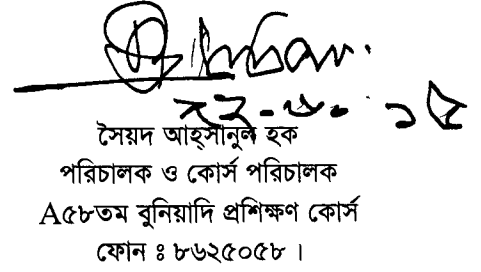 সৈয়দ আহ্সানুল হক
পরিচালক ও কোর্স পরিচালক
A৫৮তম বুনিয়াদি প্রশিক্ষণ কোর্স
ফোন ঃ ৮৬২৫০৫৮ ।